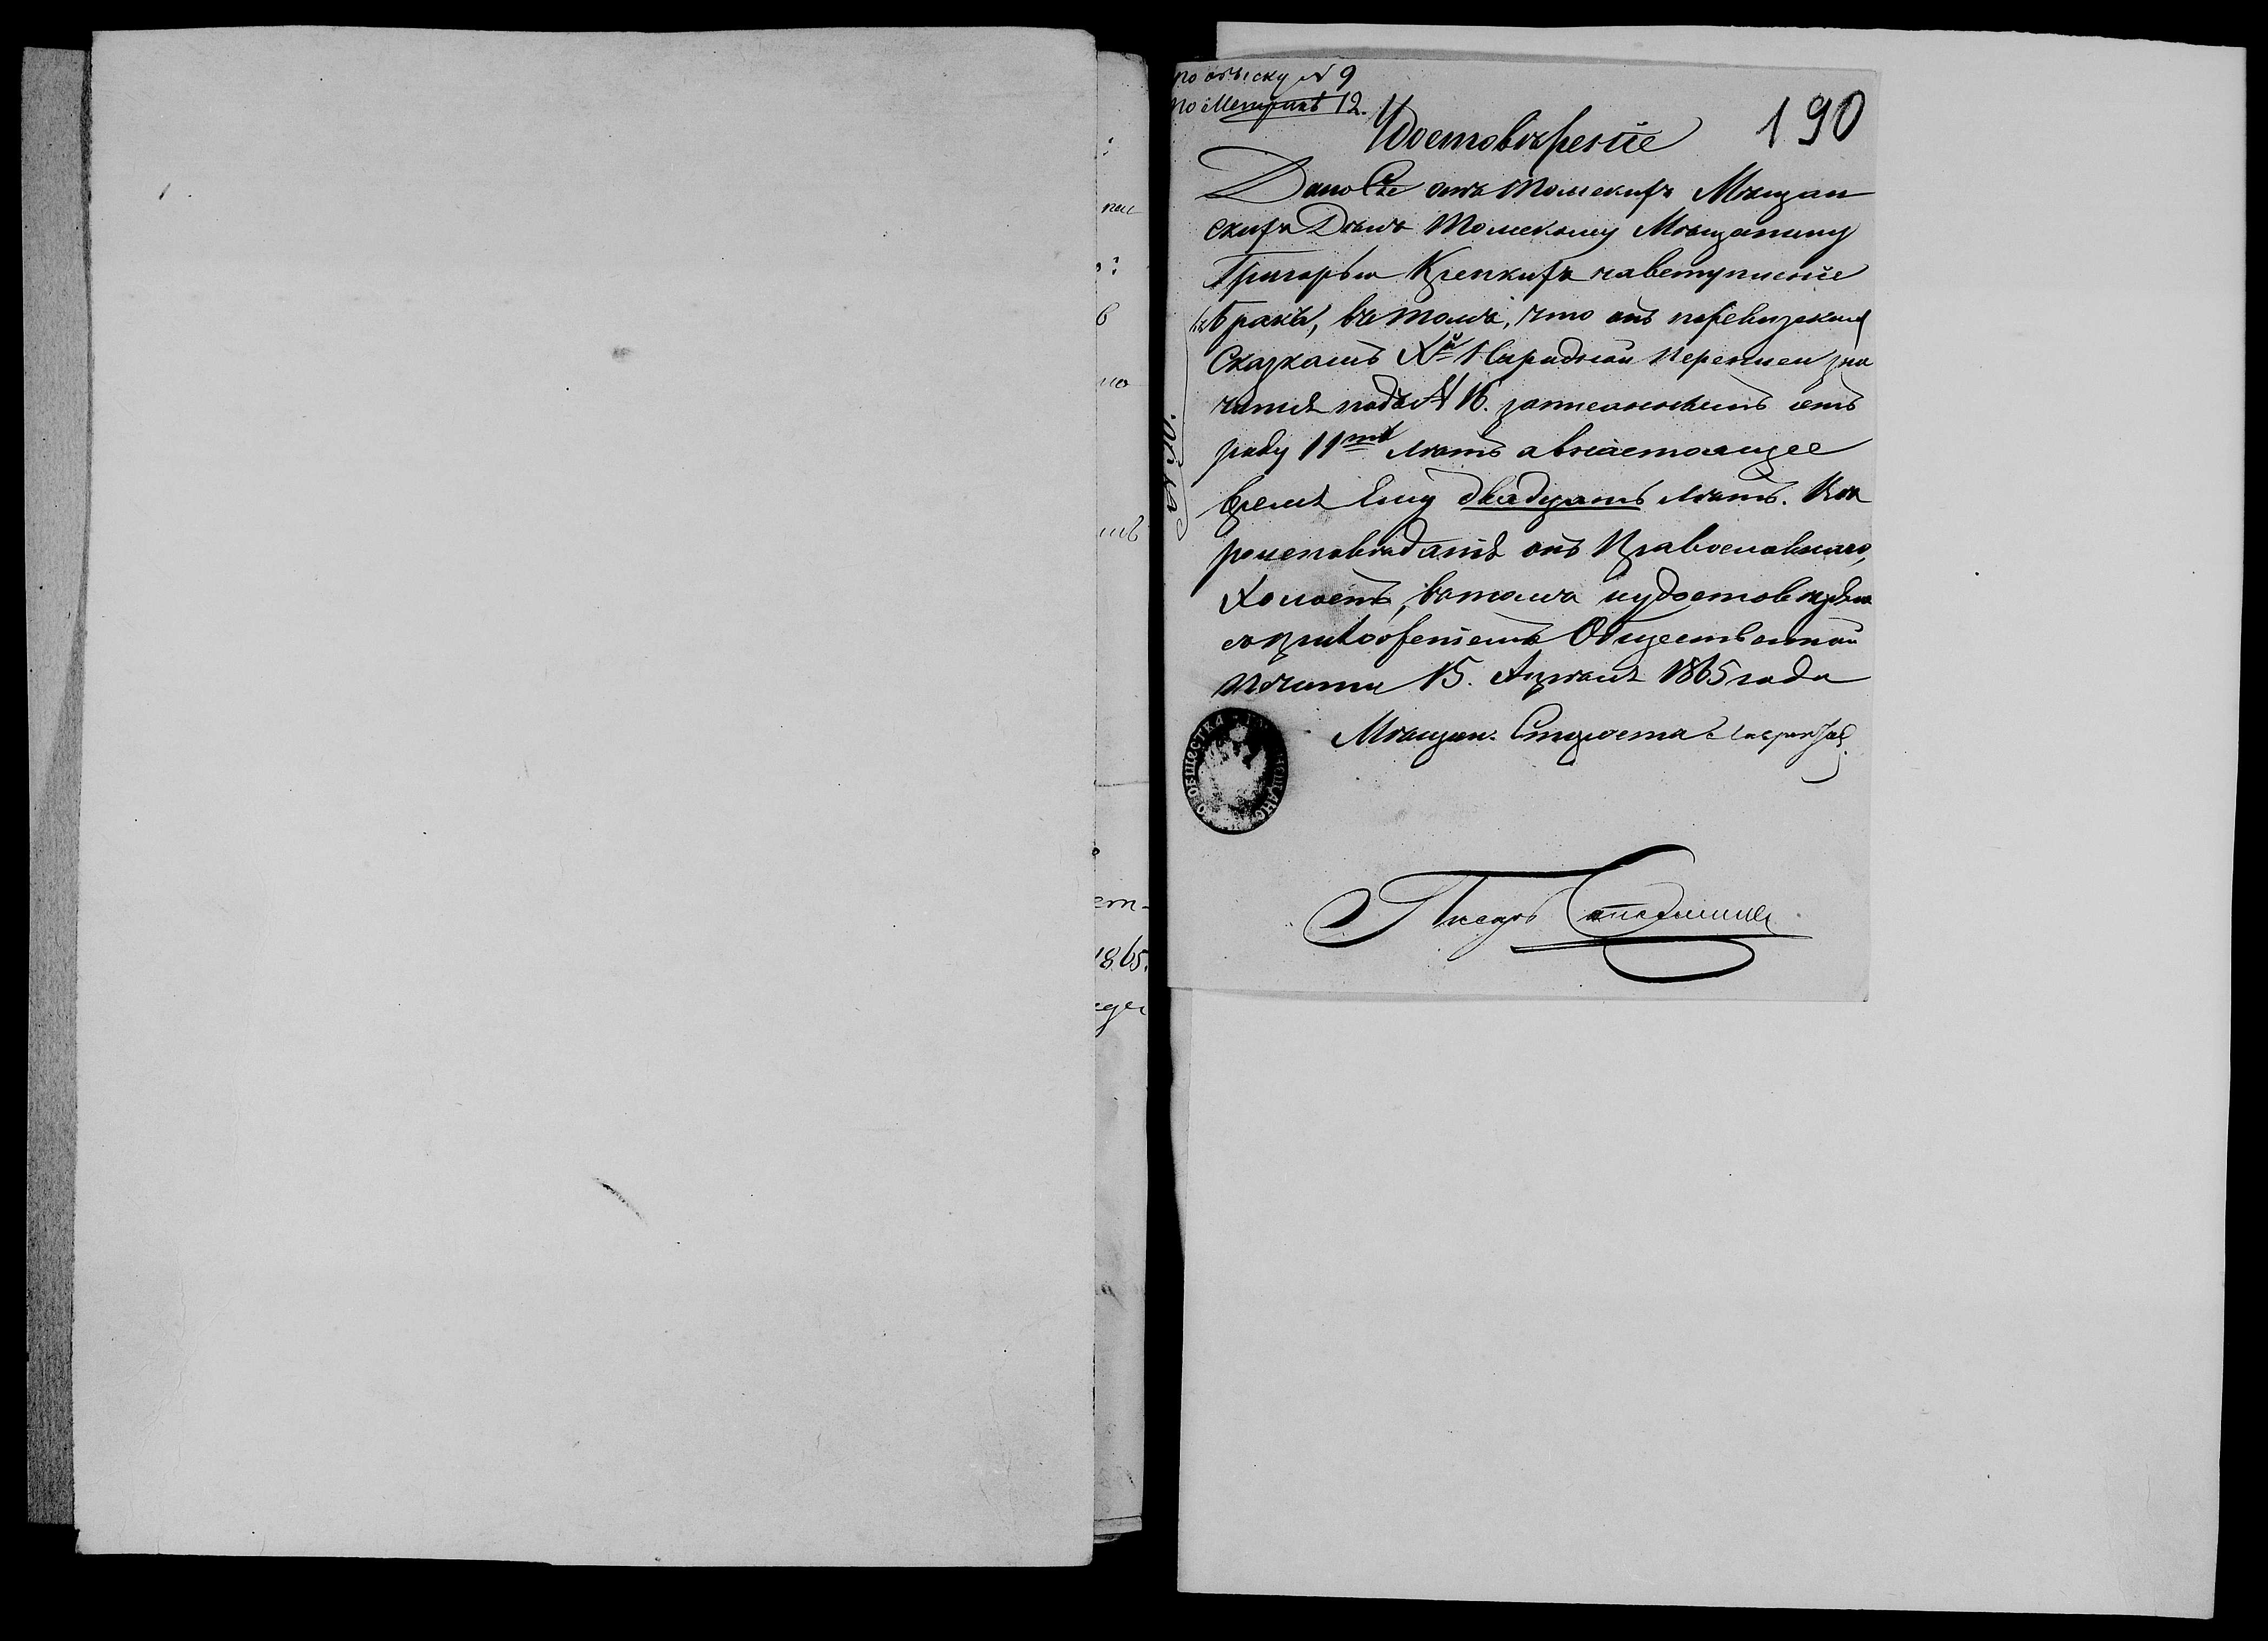 по обыску № 9
по Метрикѣ 12.
190
Удостовѣреніе
Дано Сіе отъ Томскихъ Мѣщан
скихъ Дѣлъ Томскому Мѣщанину
Григорью Крепкихъ навступленіе
въ бракъ, въ томъ, что онъ поревизскимъ
Сказкамъ Хй Народной Переписи зна
чится подъ № 16. записаннымъ отъ
роду 11ть лѣтъ авнастоящее
время Ему двадцать лѣтъ. Вѣ
роисповѣданія онъ Православнаго,
Холостъ, вътомъ иудостовѣряю
съ приложеніемъ Общественной
Печати 15. Апрѣля 1865 года
Мѣщан. Староста
Писарь
ем-
1865.